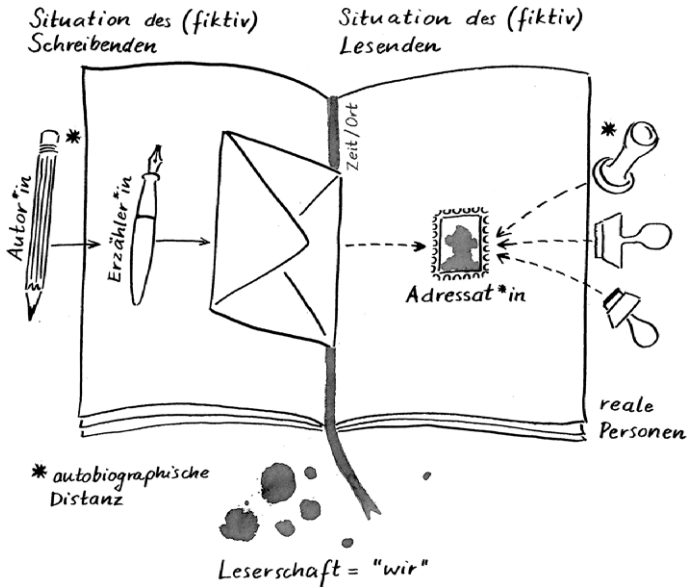 Situation des (fiktiv)
Schreibenden
Situation des (fiktiv)
Lesenden
Zeit/Ort
*
Autor*in
Erzähler*in
*
Adressat*in
reale
Personen
* autobiographische
Distanz
Leserschaft = "wir"